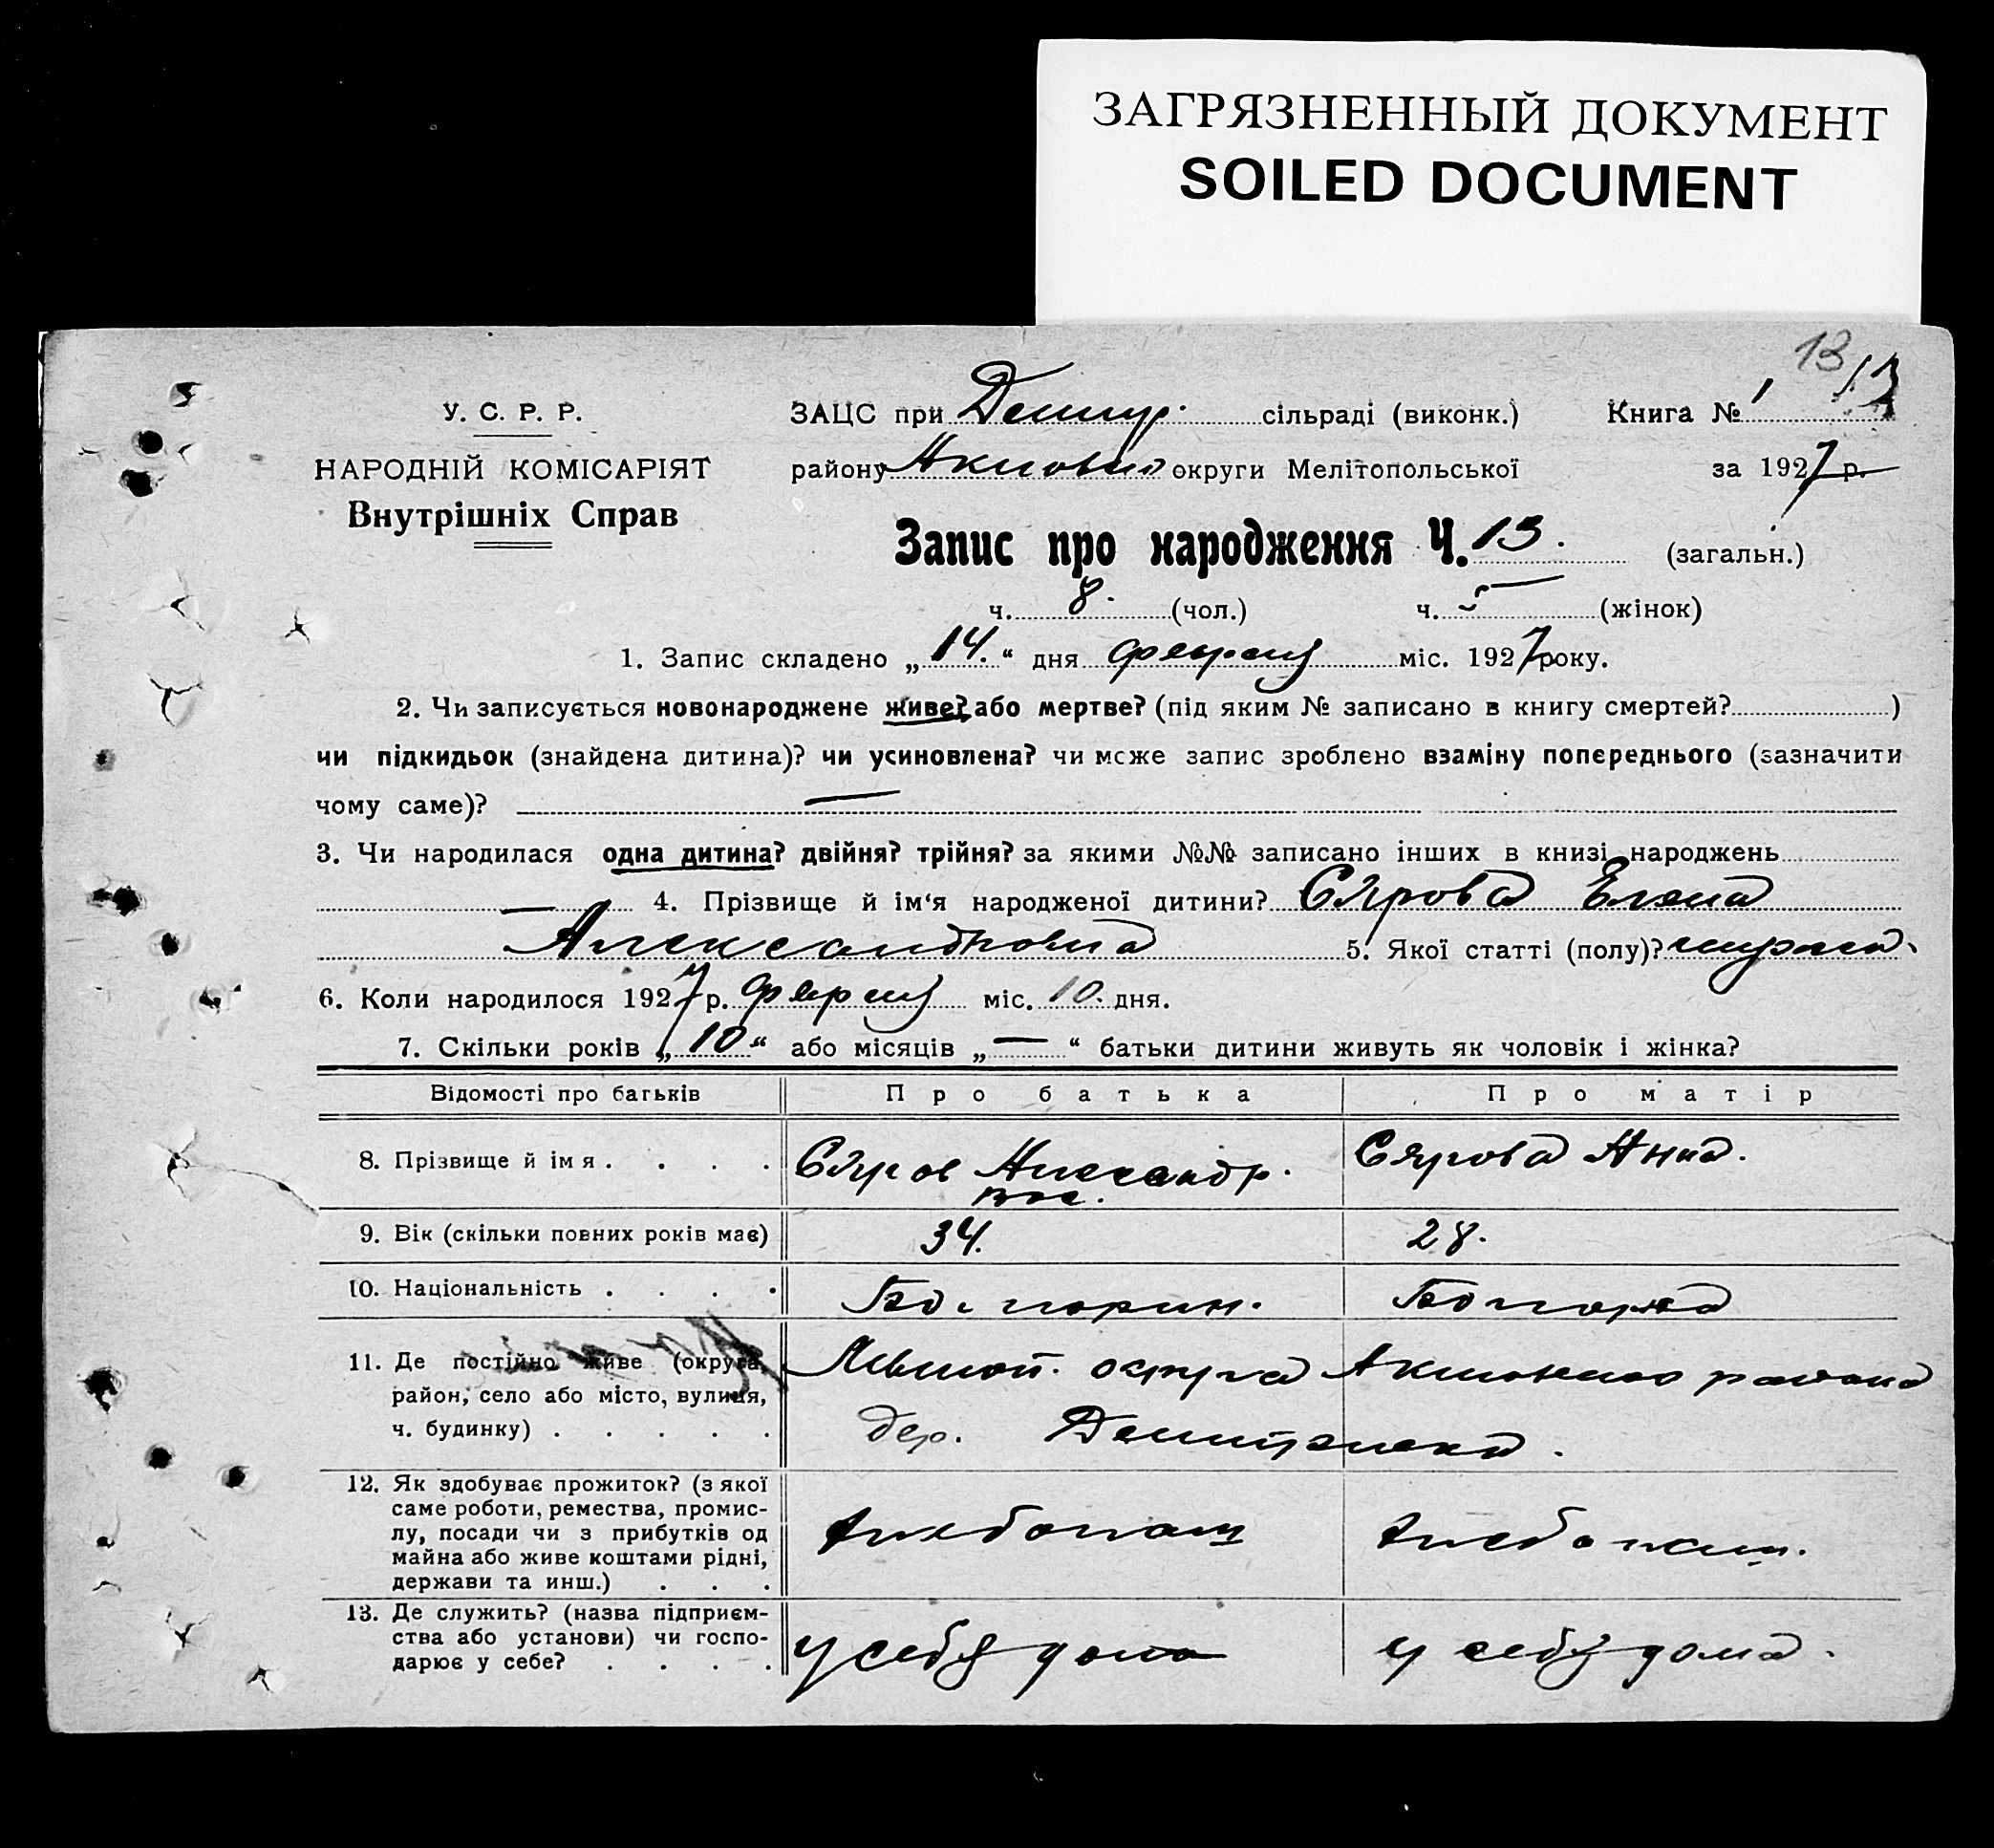 ЗАГРЯЗНЕННЫЙ ДОКУМЕНТ
SOILED DOCUMENT
13
У. С. Р. Р. ЗАЦС при сільраді (виконк.) Книга № 1
НАРОДНІЙ КОМІСАРІЯТ району округи Мелітопольської за 1927 р.
Внутрішніх Справ
Запис про народження Ч. 13. (загальн.)
ч. 8. (чол.) ч. 5 (жінок)
1. Запис складено „14.“ дня міс. 1927 року.
2. Чи записується новонароджене живе? або мертве? (під яким № записано в книгу смертей? )
чи підкидьок (знайдена дитина)? чи усиновлена? чи може запис зроблено взаміну попереднього (зазначити
чому саме)? —
3. Чи народилася одна дитина? двійня? трійня? за якими №№ записано інших в книзі народжень
— 4. Прізвище й ім‘я народженої дитини? Сярова Елена
Александровна 5. Якої статті (полу)?
6. Коли народилося 1927 р. міс. 10. дня.
7. Скільки років „10“ або місяців „—“ батьки дитини живуть як чоловік і жінка?
Відомості про батьків Про батька Про матір
8. Прізвище й імя . . . . Сяров Александр. Сярова Анна.
9. Вік (скільки повних років має) 34. 28.
10. Національність . . . .
11. Де постійно живе (округа, округа района
район, село або місто, вулиця,
ч. будинку) . . . . . дер.
12. Як здобуває прожиток? (з якої
саме роботи, ремества, промис-
лу, посади чи з прибутків од
майна або живе коштами рідні,
держави та инш.) . . .
13. Де служить? (назва підприєм-
ства або установи) чи госпо- у себя дома у себя дома.
дарює у себе? . . . .